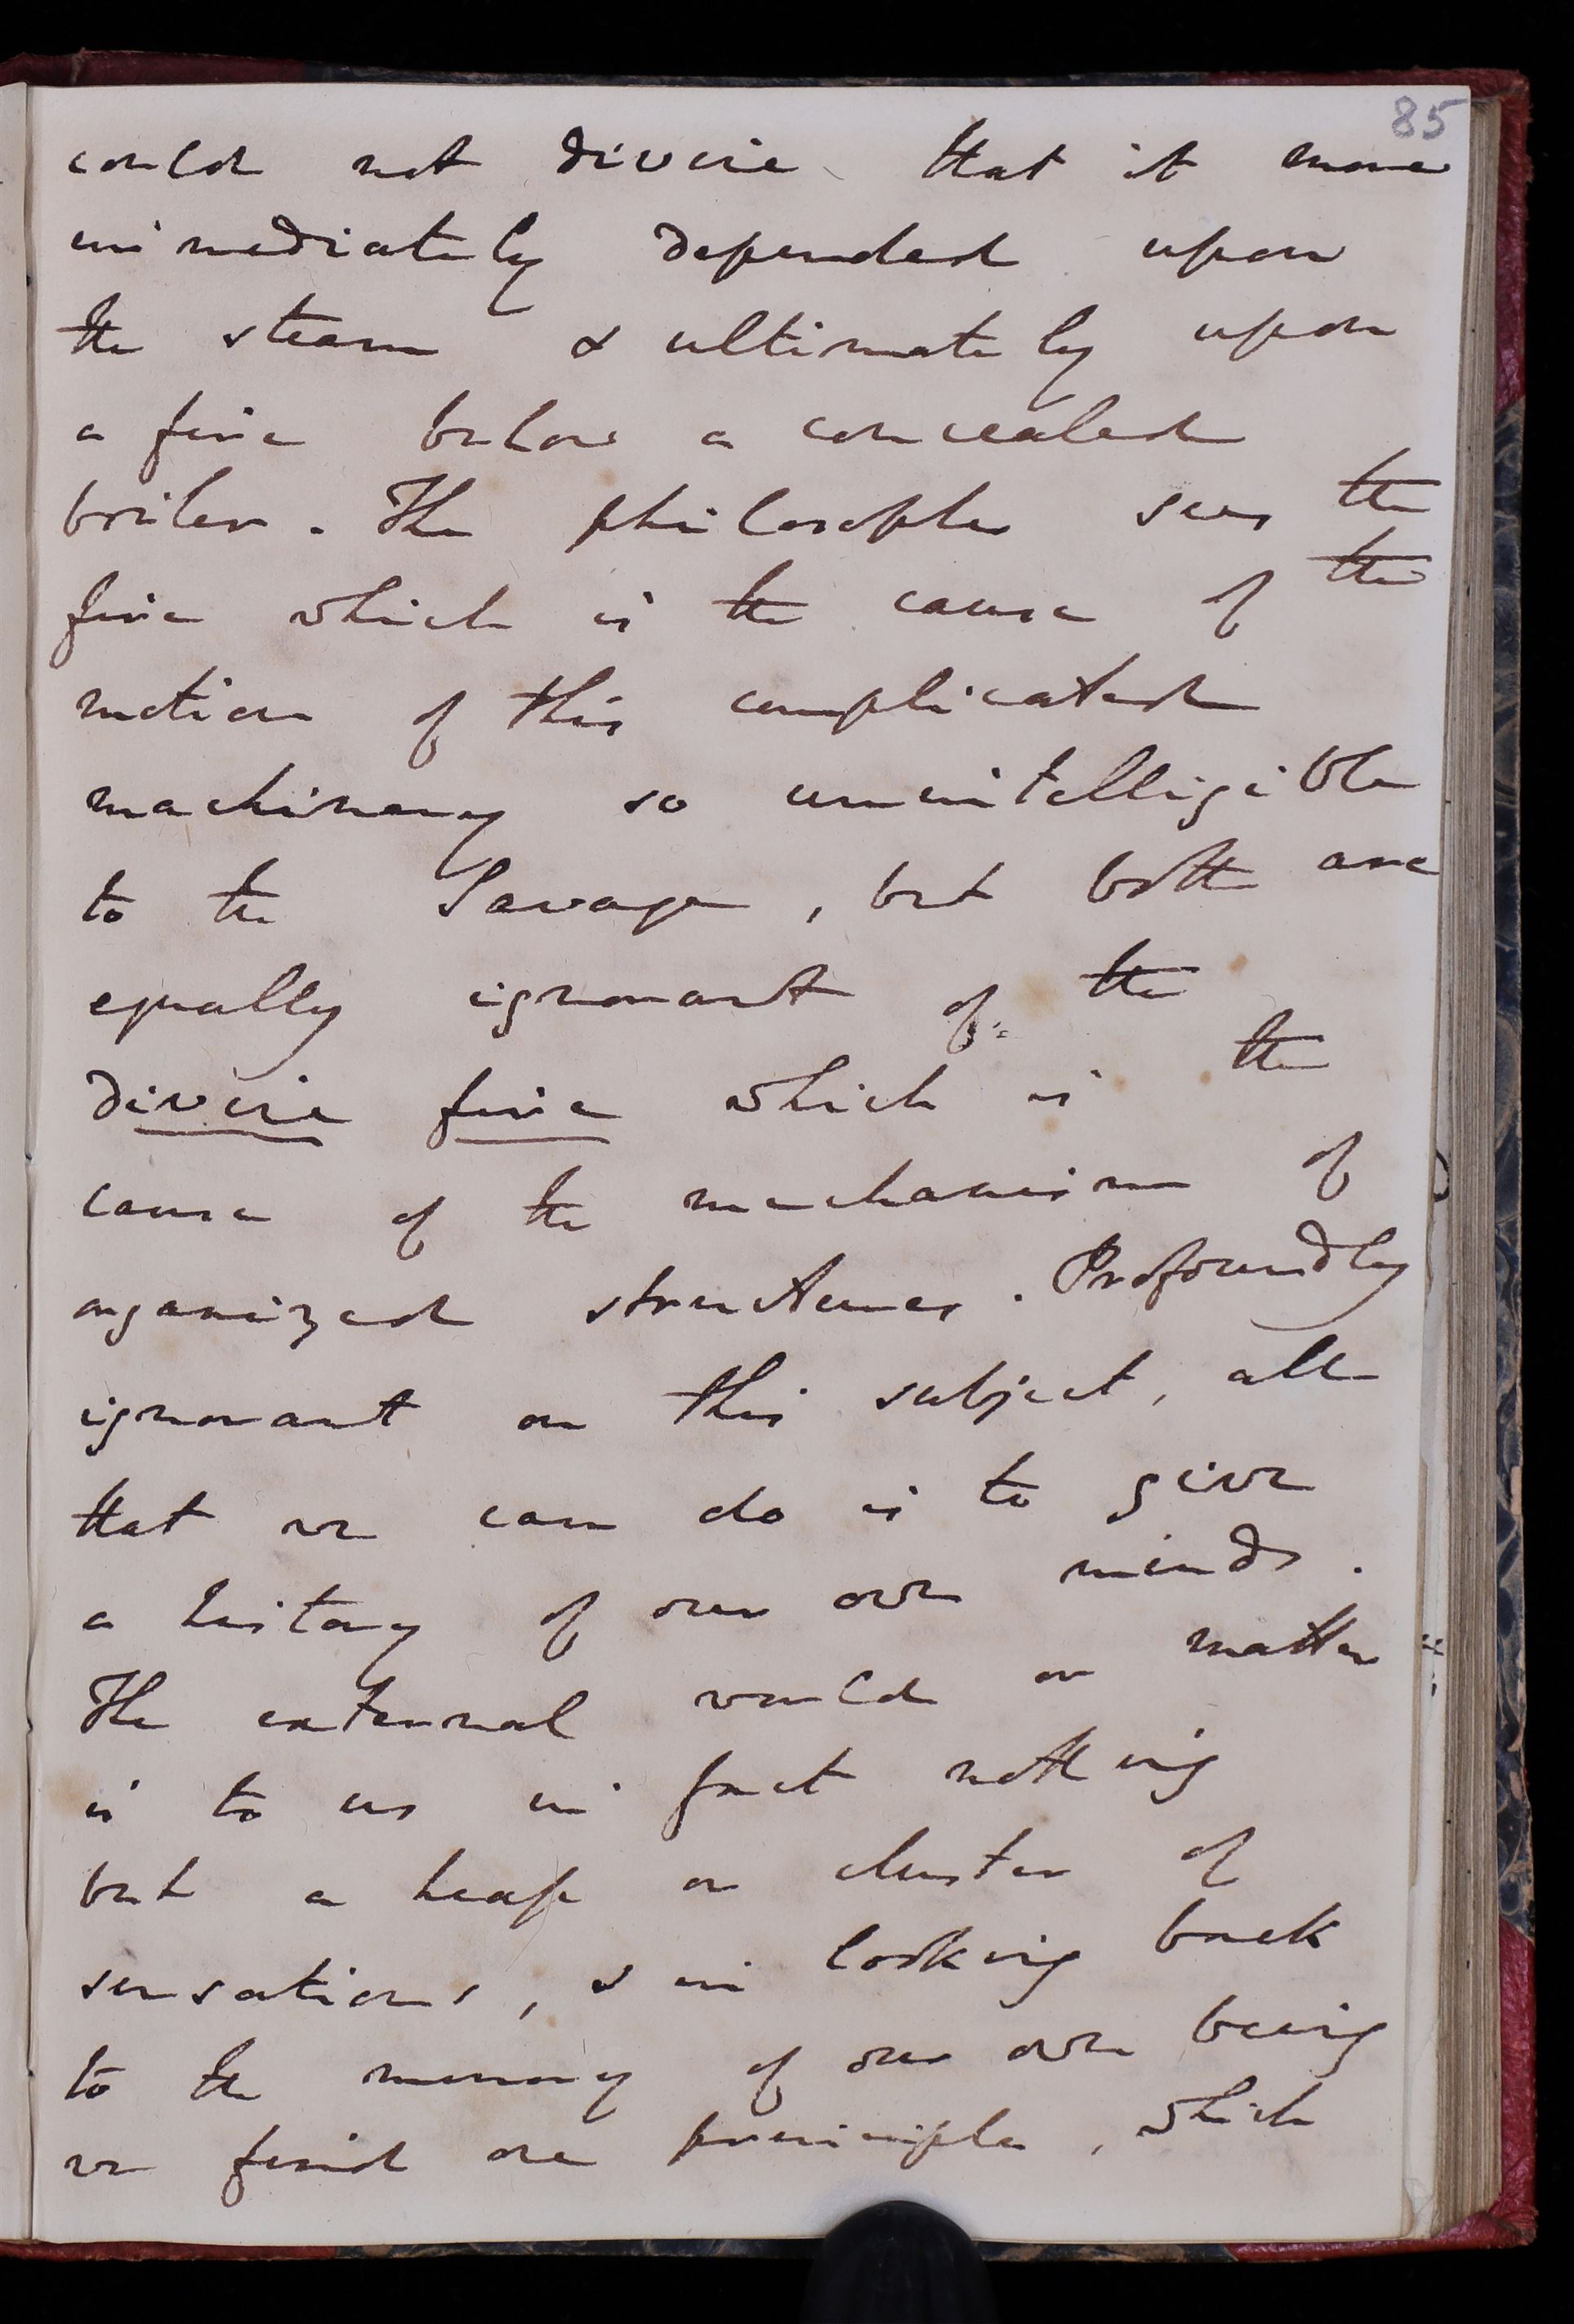 85
could not divine that it more
immediately depended upon
the steam & ultimately upon
a fire below a concealed
boiler. The philosopher sees the
fire which is the cause of the
motion of this complicated
machinery so unintelligible
to the Savage, but both are
equally ignorant of the
divine fire which is the
cause of the mechanism of
organized structures. Profoundly
ignorant on this subject, all
that we can do is to give
a history of our own minds.
The external world or matter
is to us in fact nothing
but a heap or cluster of
sensations, & in looking back
to the memory of our own being
we find one principle, which